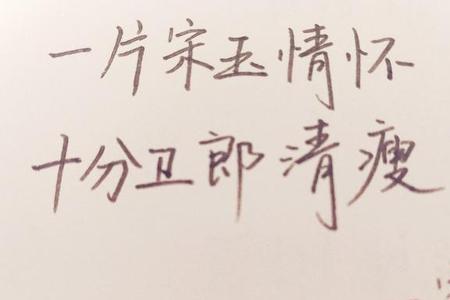 一片宋玉情怀
十分卫郎清瘦